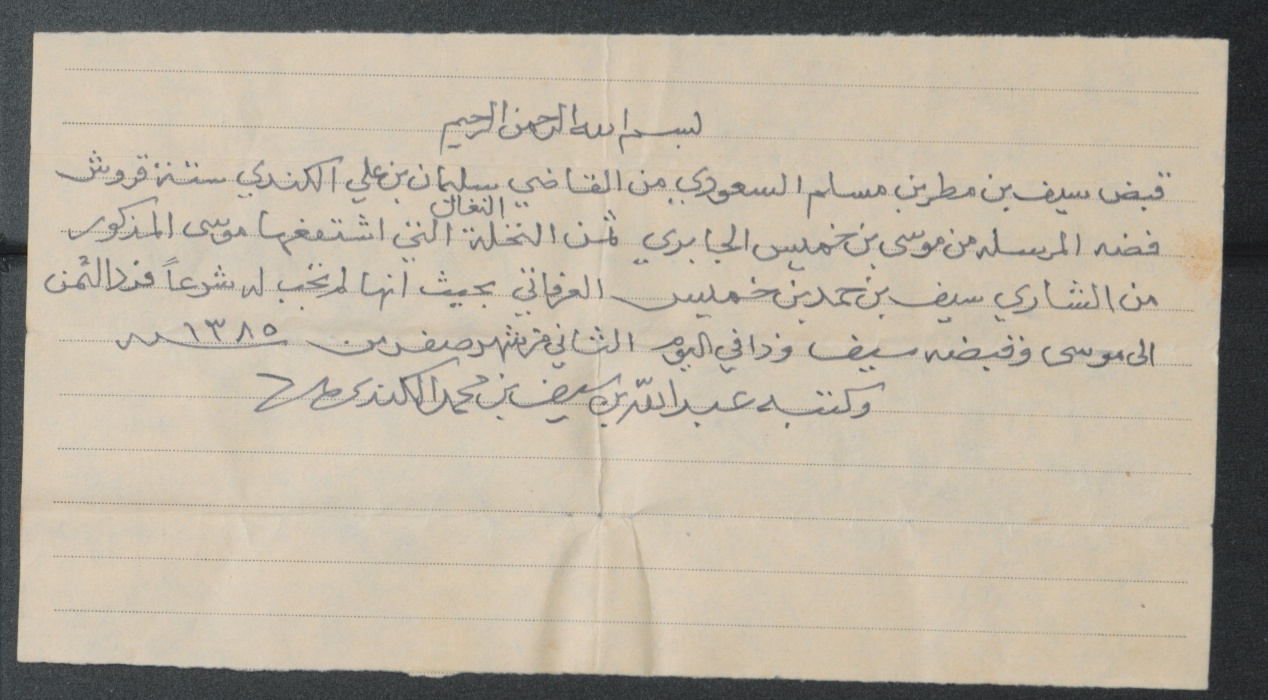 بسم الله الرحمن الرحيم
قبض سيف بن مطر بن مسلم السعودي من القاضي سليمان بن علي الكندي ستة قروش
النغال
فضه المرسله من موسى بن خميس الجابري ثمن النخلة التي اشتفعها موسى المذكور
من الشاري سيف بن حمد بن خميس العرفاتي بحيث أنها لم تجب له شرعاً فرد الثمن
الى موسى وقبضه سيف وذا في اليوم الثاني من شهر صفر من سنة ١٣٨٥
وكتبه عبد الله بن سيف بن محمد الكندي